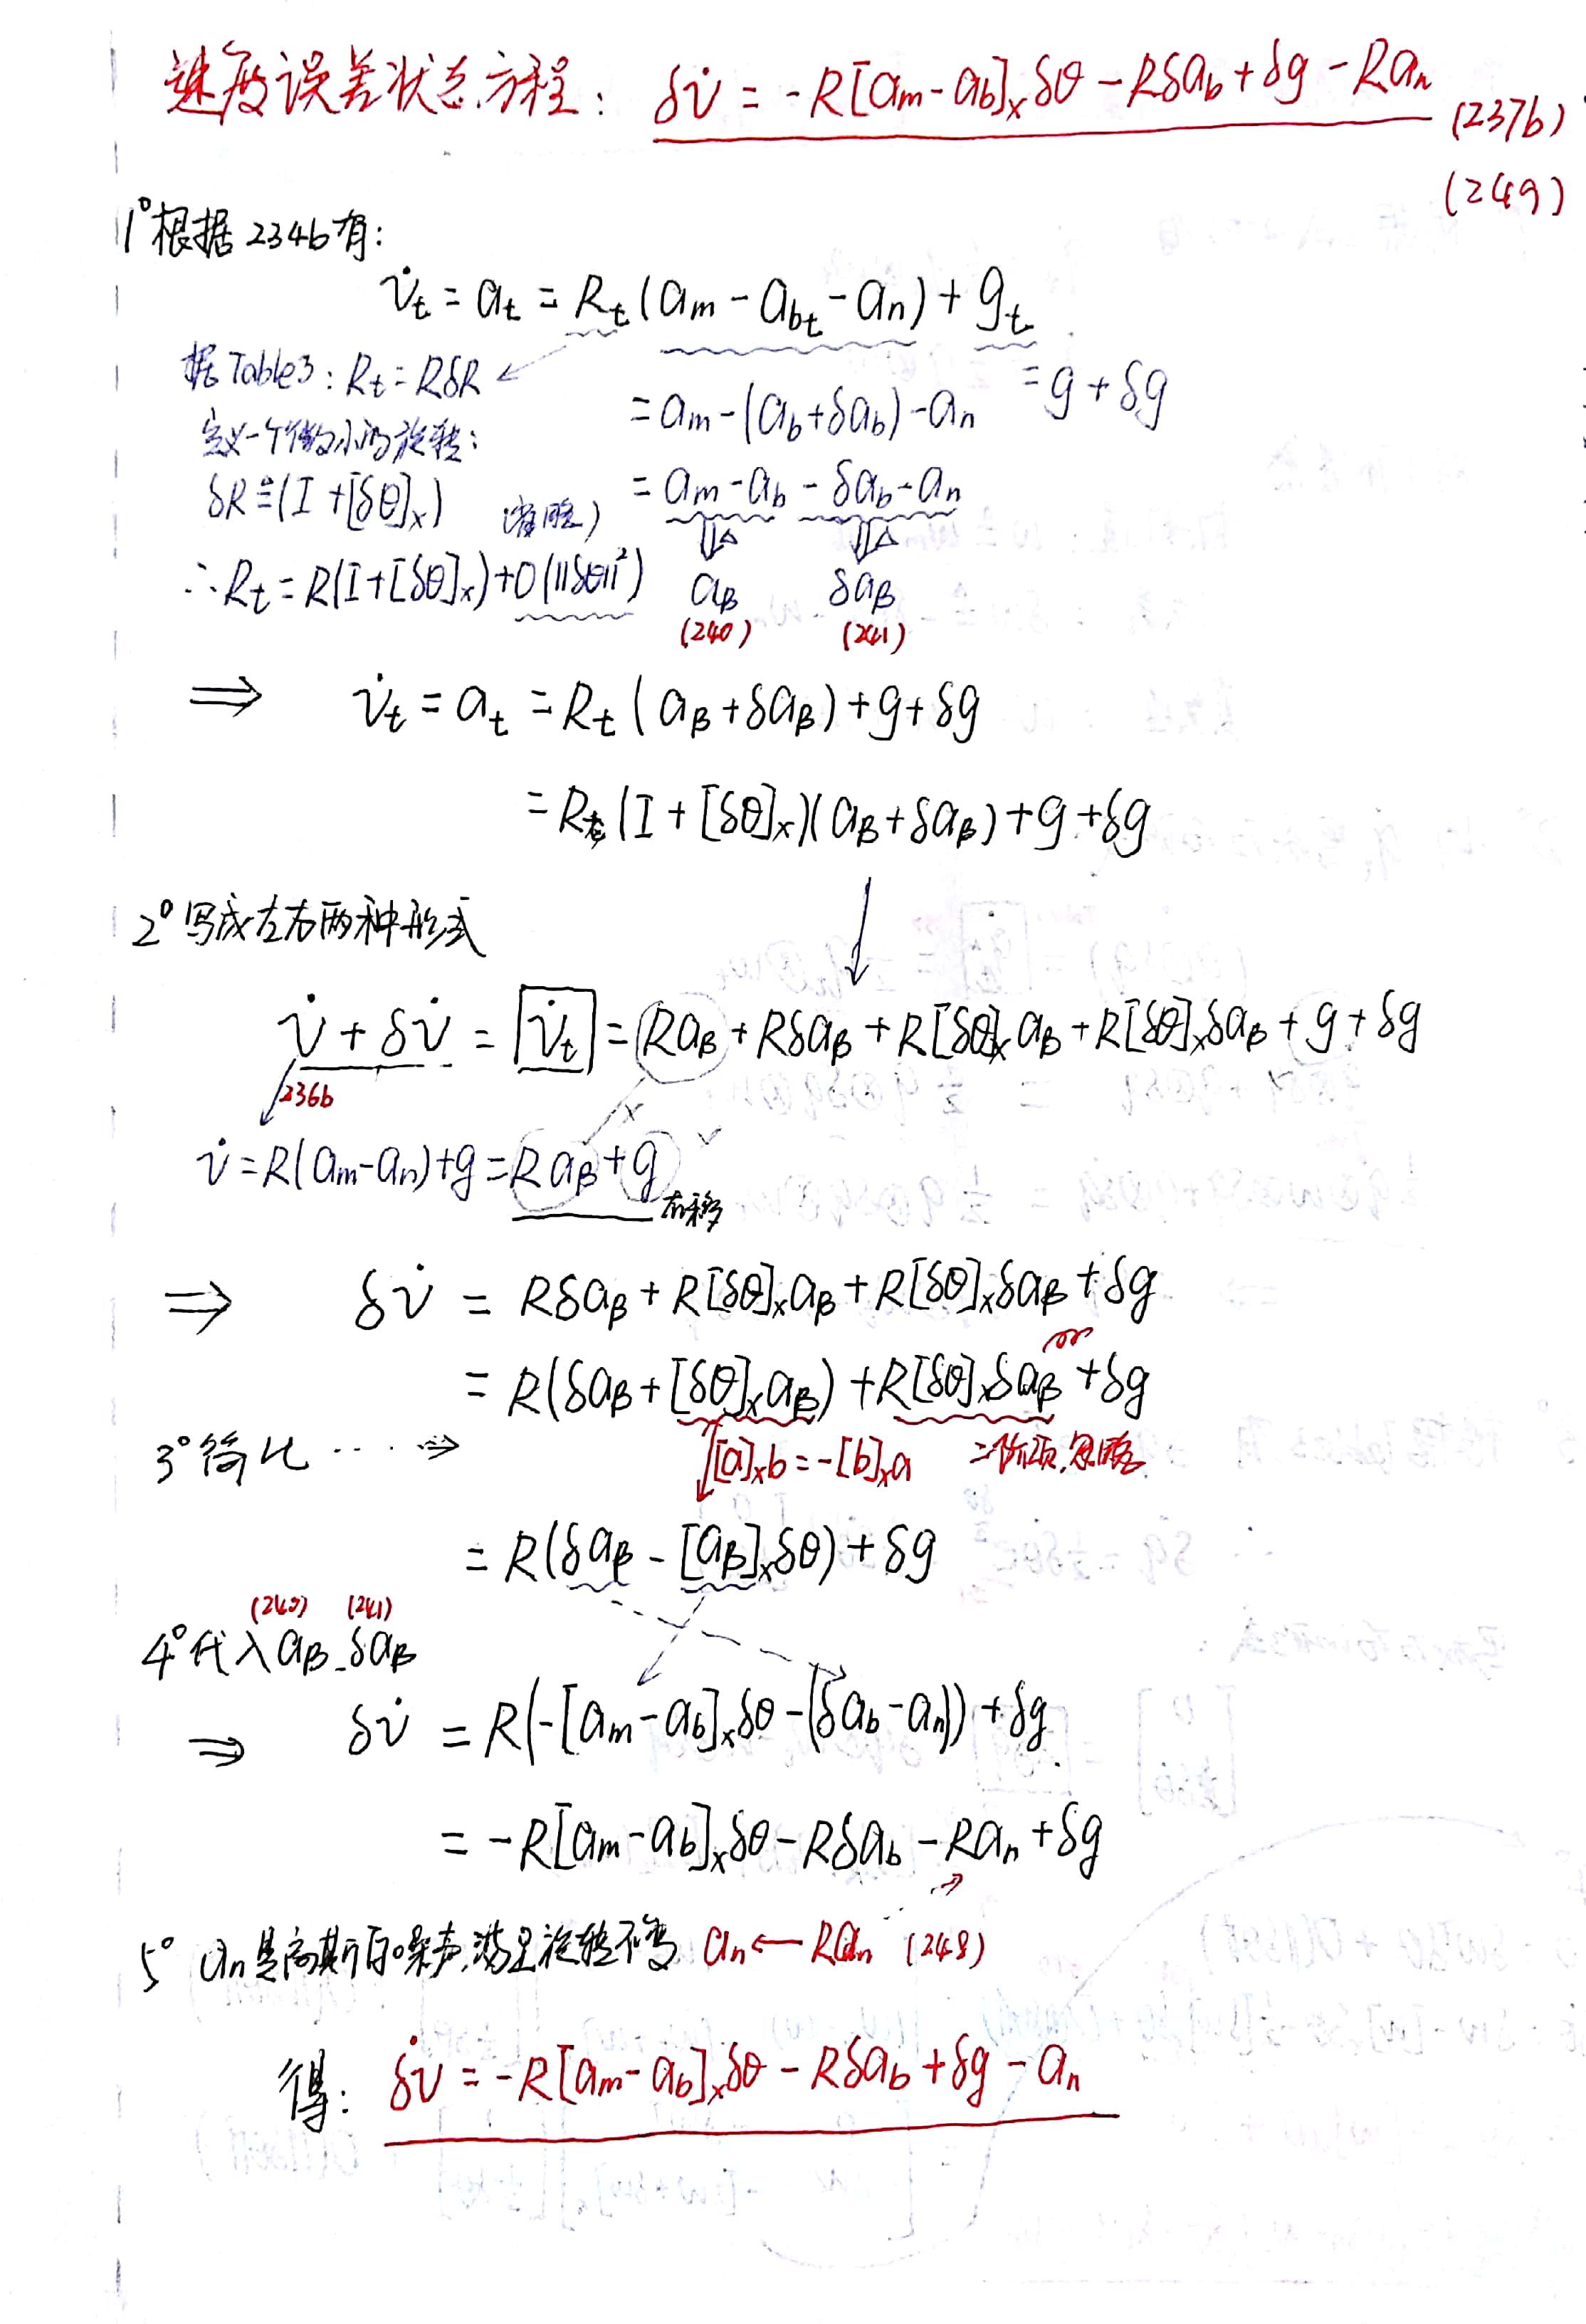 速度误差状态方程: δv̇ = -R[am-ab]×δθ - Rδab + δg - Ran (237b)
(249)
1° 根据 234b 有:
v̇t = at = Rt(am - abt - an) + gt
据 Table3: Rt = RδR
= am - (ab+δab) - an
= g + δg
定义一个微小的旋转:
= am - ab - δab - an
δR ≜ (I + [δθ]×)
(省略)
∴ Rt = R(I+[δθ]×) + O(||δθ||²)
aB
δaB
(240)
(241)
⇒ v̇t = at = Rt(aB + δaB) + g + δg
= R(I + [δθ]×)(aB + δaB) + g + δg
2° 写成左右两种形式
v̇ + δv̇ = v̇t = RaB + RδaB + R[δθ]×aB + R[δθ]×δaB + g + δg
236b
v̇ = R(am-an)+g = RaB+g 右移
⇒ δv̇ = RδaB + R[δθ]×aB + R[δθ]×δaB + δg
= R(δaB + [δθ]×aB) + R[δθ]×δaB + δg
3° 简化 ····⇒
[a]×b = -[b]×a
二阶项,忽略
= R(δaB - [aB]×δθ) + δg
(240) (241)
4° 代入 aB δaB
⇒ δv̇ = R(-[am-ab]×δθ - (δab-an)) + δg
= -R[am-ab]×δθ - Rδab - Ran + δg
5° an是高斯白噪声,满足旋转不变 an ← Ran (248)
得: δv̇ = -R[am-ab]×δθ - Rδab + δg - an